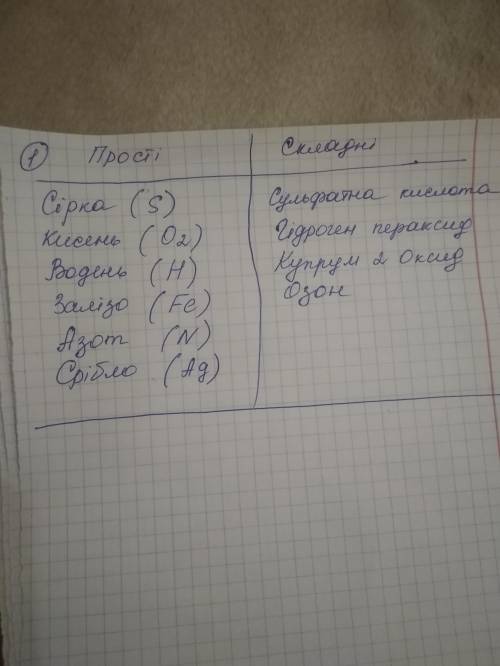 1 Прості Складні
Сірка (S) Сульфатна кислота
Кисень (O2) Гідроген пераксид
Водень (H) Купрум 2 оксид
Залізо (Fe) Озон
Азот (N)
Срібло (Ag)